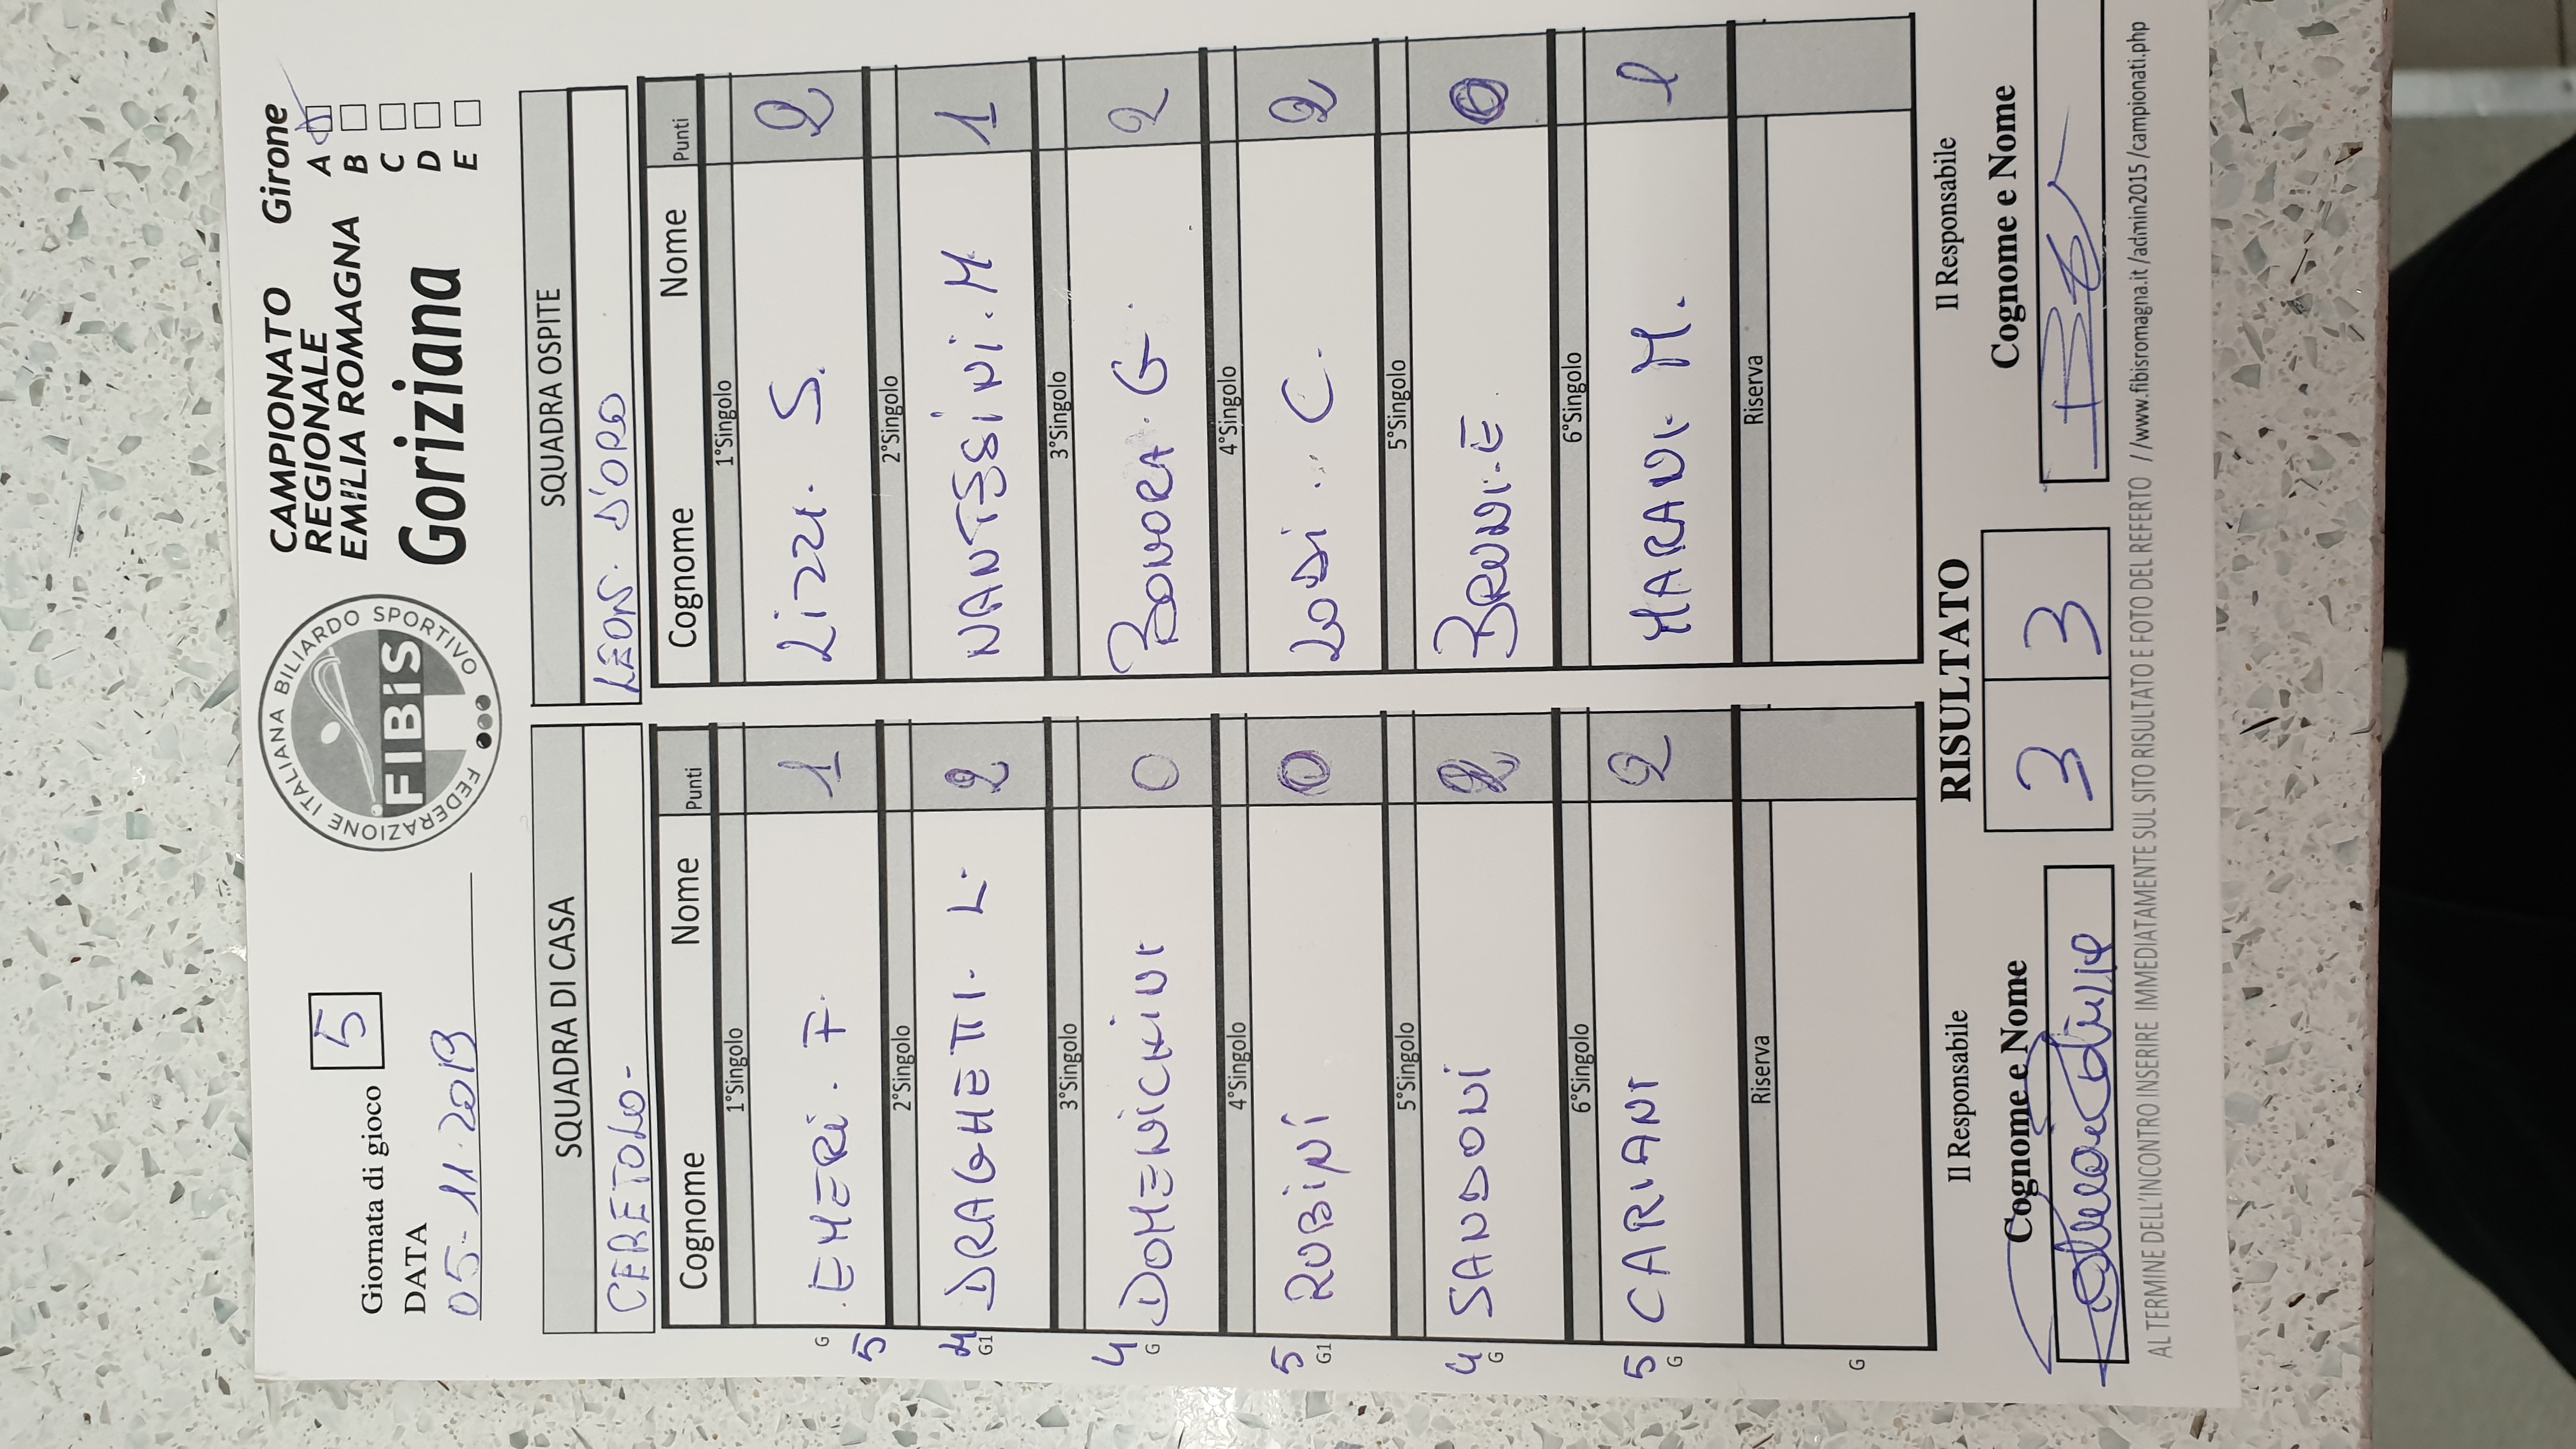 Giornata di gioco 5
DATA
05-11-2019
FEDERAZIONE ITALIANA BILIARDO SPORTIVO
FIBiS
CAMPIONATO
REGIONALE
EMILIA ROMAGNA
Goriziana
Girone
A
B
C
D
E
SQUADRA DI CASA
CERETOLO-
Cognome Nome Punti
1°Singolo
G EMERI. F. 1
5
2°Singolo
G1 DRAGHETTI. L. 2
3°Singolo
4 G DOMENICHINI 0
4°Singolo
5 G1 RUBINI 0
5°Singolo
4 G SANDONI 2
6°Singolo
5 G CARIANI 2
Riserva
G
SQUADRA OSPITE
LEON. D'ORO
Cognome Nome Punti
1°Singolo
LIZZI. S. 2
2°Singolo
1
3°Singolo
BONORA. G. 2
4°Singolo
LODI.. C. 2
5°Singolo
BRUNI. E. 0
6°Singolo
MARANI M. 1
Riserva
Il Responsabile
Cognome e Nome
RISULTATO
3 3
Il Responsabile
Cognome e Nome
AL TERMINE DELL'INCONTRO INSERIRE IMMEDIATAMENTE SUL SITO RISULTATO E FOTO DEL REFERTO //www.fibisromagna.it/admin2015/campionati.php